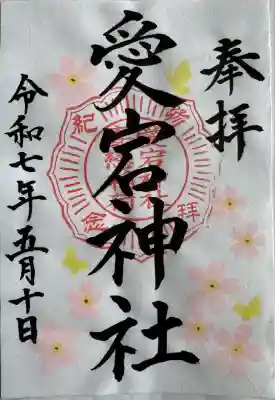 奉拝
愛宕神社
令和七年五月十日
参拝紀念